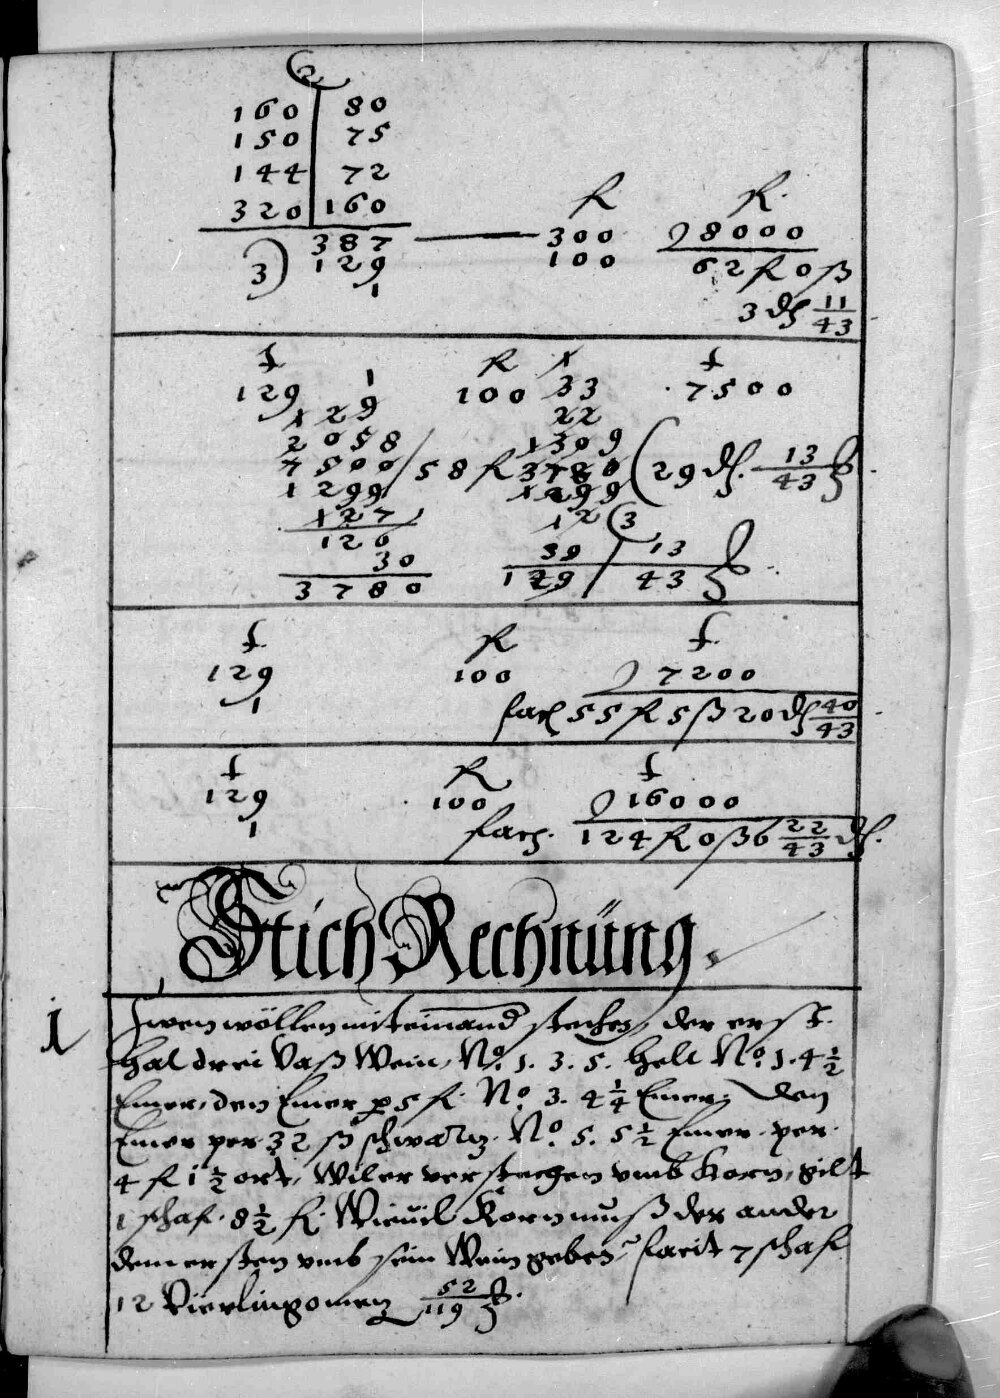 2
160 | 80
150 | 75
144 | 72
320 | 160
387 — 300 8000
3) 129 100 62 fl 0 ß
1
3 ₰ 11/43
129 100 7500
1
129
2058
7500 / 58 fl 3780 ( 29 ₰ 13/43
1299
127
120
30
3780
x
33
22
1309
1299
12 (3
39 / 13
129 / 43
129 100 7200
1 facit 55 fl 5 ß 20 ₰ 40/43
129 100 16000
1 facit 124 fl 0 ß 6 22/43 ₰
Stich Rechnüng
1 Zwen wöllen miteinand stechen, der erst
hat drei Vaß Wein, No. 1. 3. 5. helt No. 1. 4 1/2
Emer, den Emer p 5 fl. No. 3. 4 1/4 Emer, den
Emer per 32 ß schwartz. No. 5. 5 1/2 Emer per
4 fl 1 1/2 ort, Wil er verstechen vmb Korn, gilt
1 schaf 8 1/2 fl. Wieuil Korn muß der ander
dem ersten vmb sein Wein geben, facit 7 schaf
12 Vierling 52/119